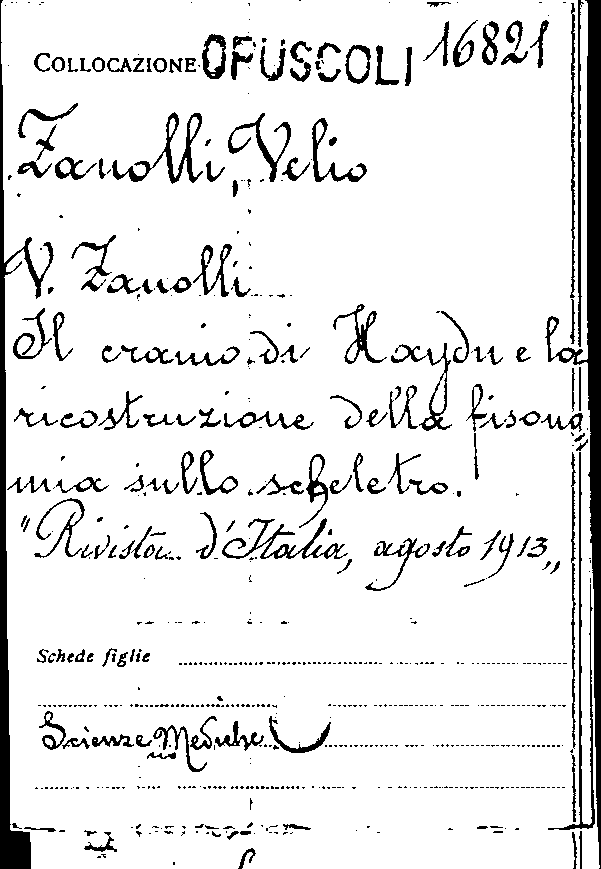 COLLOCAZIONE OPUSCOLI 16821
Zanolli, Velio
V. Zanolli
Il cranio di Haydn e la
ricostruzione della fisono
mia sullo scheletro.
"Rivista d'Italia, agosto 1913„
Schede figlie
Scienze Mediche